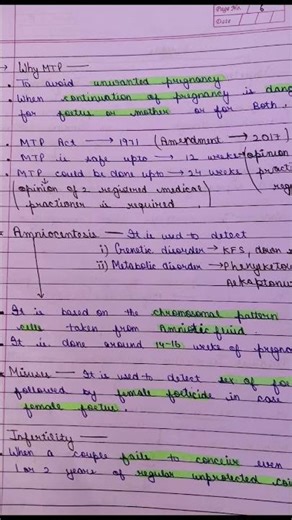 Page No. 6
Date
→ Why MTP —
• To avoid unwanted pregnancy
• When continuation of pregnancy is dang
for foetus or mother or for Both.
• MTP Act → 1971 (Amendment → 2017)
• MTP is safe upto → 12 weeks (opinion
• MTP could be done upto → 24 weeks (practi
(opinion of 2 registered medical regi
practioner is required.)
Amniocentesis — It is used to detect
i) Genetic disorder → KFS, down s
ii) Metabolic disorder → Phenylketo
Alkaptonu
• It is based on the chromosomal pattern
cells taken from Amniotic fluid
• It is done around 14-16 weeks of pregna
• Misuse — It is used to detect sex of foe
followed by female foeticide in case
female foetus.
Infertility —
• When a couple fails to conceive even
1 or 2 years of regular unprotected coi